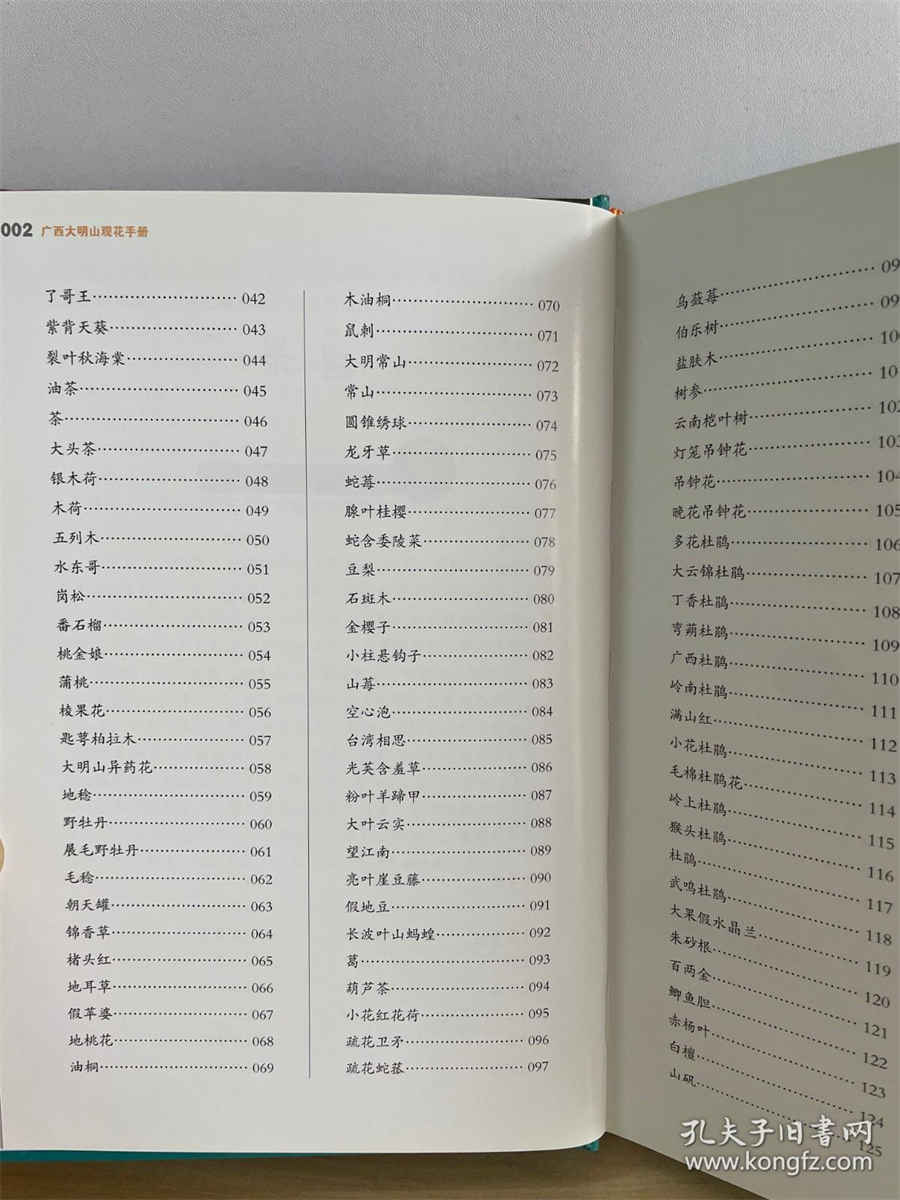 002 广西大明山观花手册
了哥王………………………042
紫背天葵……………………043
裂叶秋海棠…………………044
油茶…………………………045
茶……………………………046
大头茶………………………047
银木荷………………………048
木荷…………………………049
五列木………………………050
水东哥………………………051
岗松…………………………052
番石榴………………………053
桃金娘………………………054
蒲桃…………………………055
棱果花………………………056
匙萼柏拉木…………………057
大明山异药花………………058
地稔…………………………059
野牡丹………………………060
展毛野牡丹…………………061
毛稔…………………………062
朝天罐………………………063
锦香草………………………064
楮头红………………………065
地耳草………………………066
假苹婆………………………067
地桃花………………………068
油桐…………………………069
木油桐………………………070
鼠刺…………………………071
大明常山……………………072
常山…………………………073
圆锥绣球……………………074
龙牙草………………………075
蛇莓…………………………076
腺叶桂樱……………………077
蛇含委陵菜…………………078
豆梨…………………………079
石斑木………………………080
金樱子………………………081
小柱悬钩子…………………082
山莓…………………………083
空心泡………………………084
台湾相思……………………085
光荚含羞草…………………086
粉叶羊蹄甲…………………087
大叶云实……………………088
望江南………………………089
亮叶崖豆藤…………………090
假地豆………………………091
长波叶山蚂蝗………………092
葛……………………………093
葫芦茶………………………094
小花红花荷…………………095
疏花卫矛……………………096
疏花蛇菰……………………097
乌蔹莓………………………09
伯乐树………………………09
盐肤木………………………10
树参…………………………10
云南桤叶树…………………102
灯笼吊钟花…………………103
吊钟花………………………104
晚花吊钟花…………………105
多花杜鹃……………………106
大云锦杜鹃…………………107
丁香杜鹃……………………108
弯蒴杜鹃……………………109
广西杜鹃……………………110
岭南杜鹃……………………111
满山红………………………112
小花杜鹃……………………113
毛棉杜鹃花…………………114
岭上杜鹃……………………115
猴头杜鹃……………………116
杜鹃…………………………117
武鸣杜鹃……………………118
大果假水晶兰………………119
朱砂根………………………120
百两金………………………121
鲫鱼胆………………………122
赤杨叶………………………123
白檀…………………………124
山矾…………………………125
孔夫子旧書网
www.kongfz.com